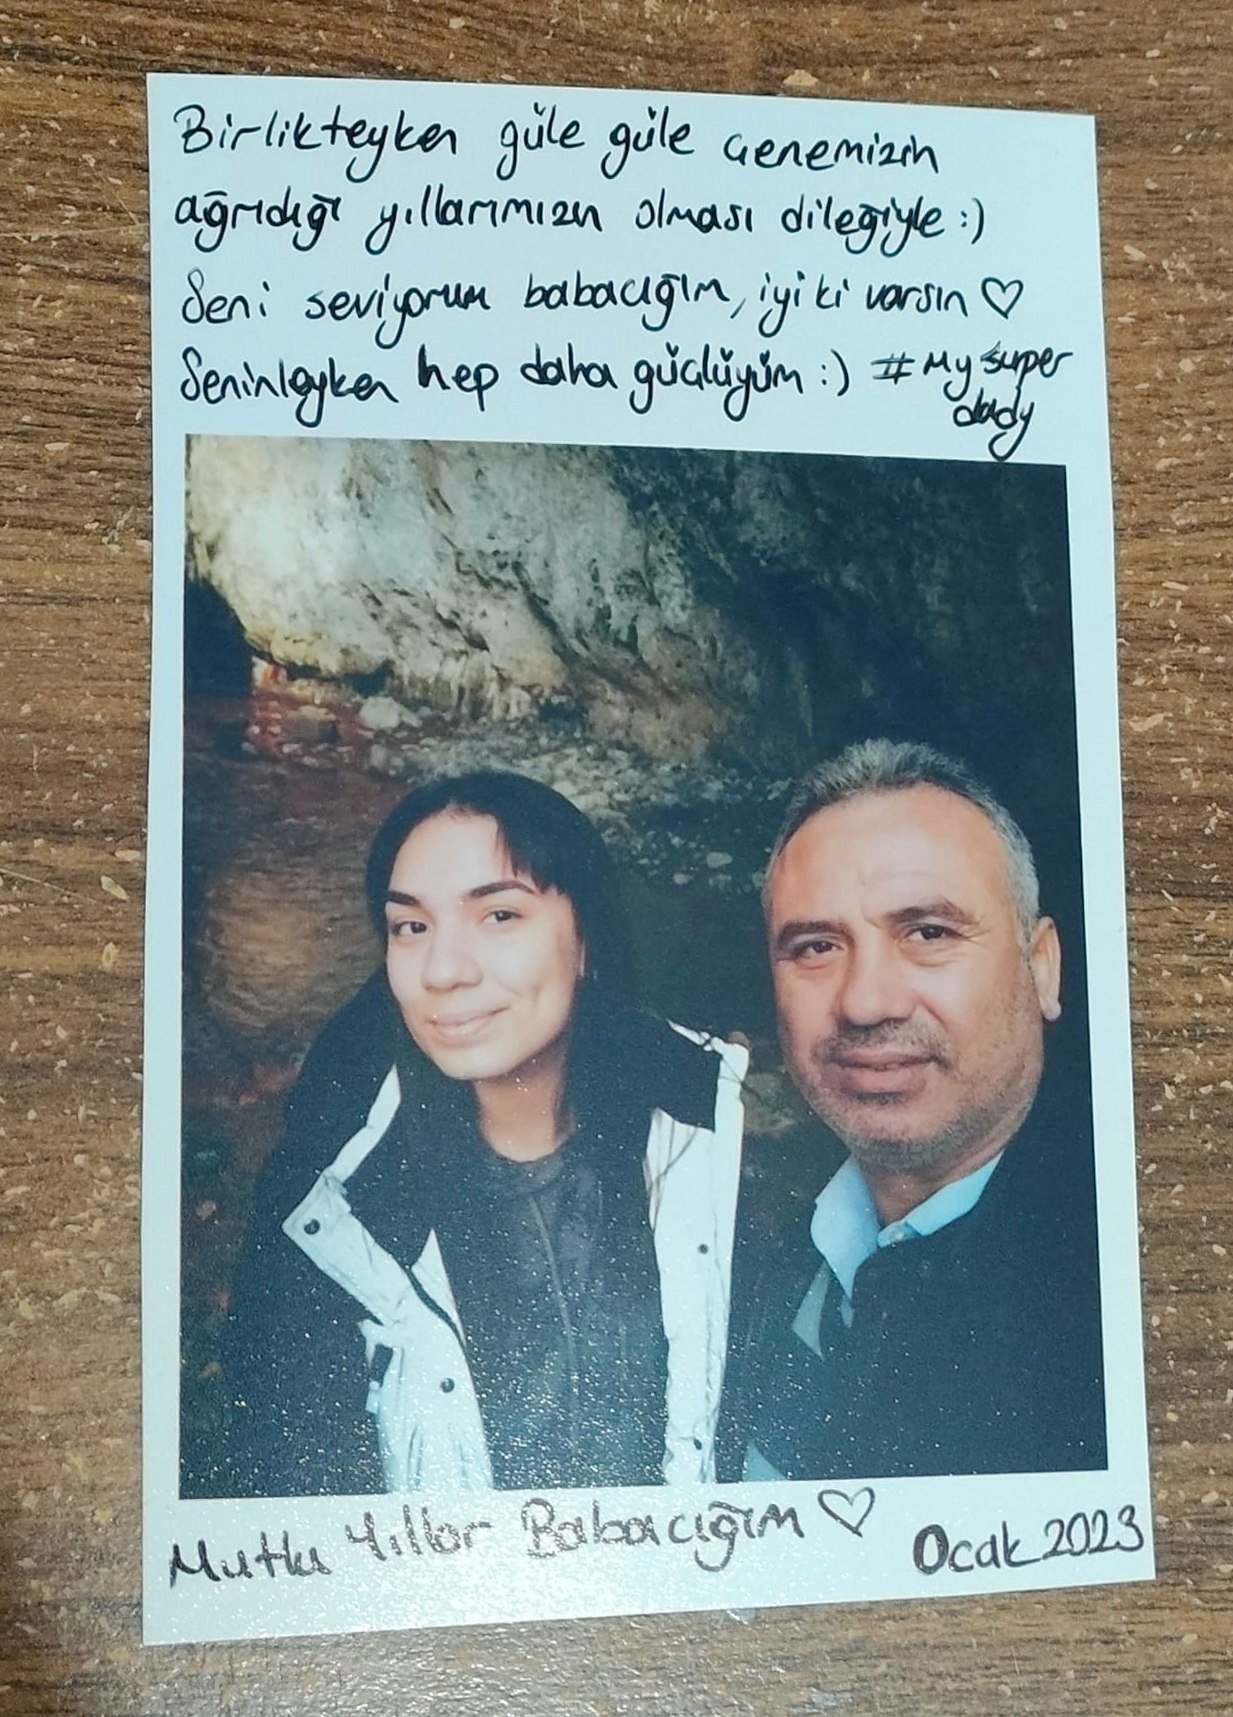 Birlikteyken güle güle çenemizin
ağrıdığı yıllarımızın olması dileğiyle :)
Seni seviyorum babacığım, iyi ki varsın ♡
Seninleyken hep daha güçlüyüm :) #My super
dady
Mutlu Yıllar Babacığım ♡ Ocak 2023